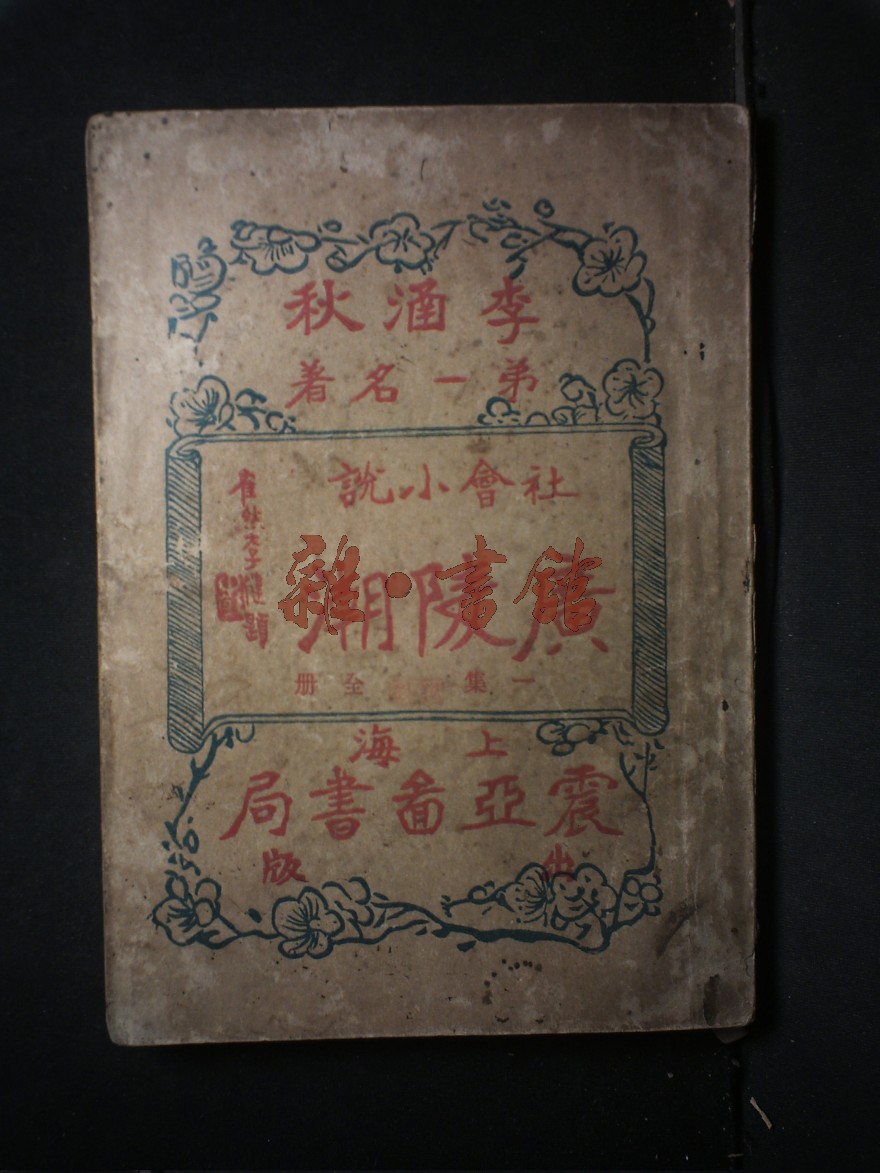 李涵秋
弟一名著
社會小說
廣陵潮
一集 全册
題
上海
震亞啚書局
出版
雜·書館